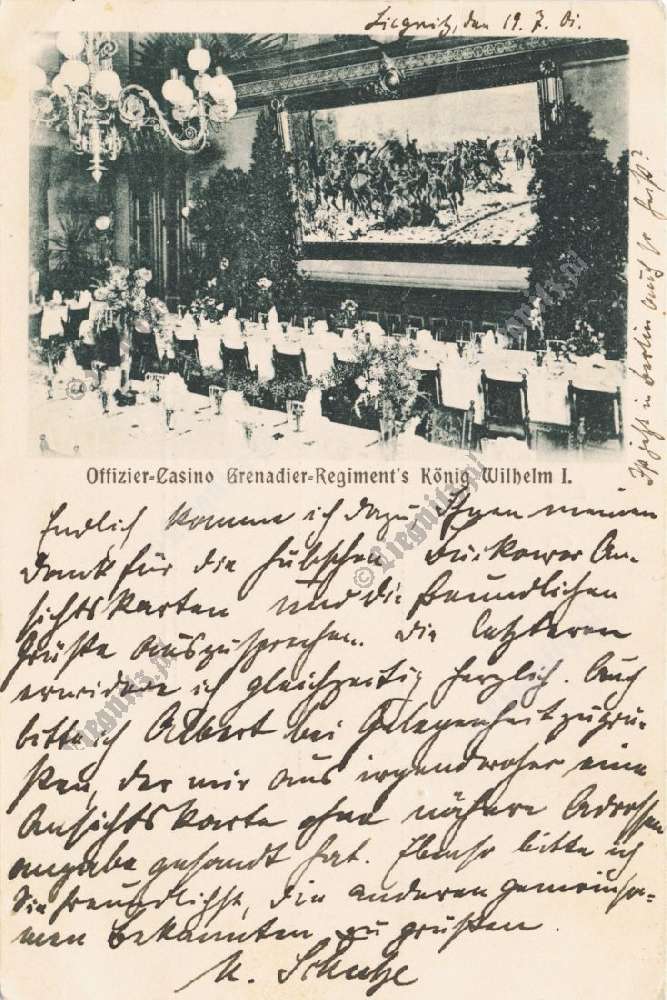 Liegnitz, den 19. 7. 01.
Offizier-Casino Grenadier-Regiment's König Wilhelm I.
Endlich komme ich dazu, Ihnen meinen
Dank für die hübschen Buckower An-
sichtskarten und die freundlichen
Grüße auszusprechen. Die letzteren
erwidere ich gleichzeitig herzlich. Auch
bitte ich Albert bei Gelegenheit zu grü-
ßen, der mir aus irgendwoher eine
Ansichtskarte ohne nähere Adressen
angabe gesandt hat. Ebenso bitte ich
Sie freundlichst, die anderen gemeinsa-
men Bekannten zu grüßen
M. Schulze
Ist's in Berlin auch so heiß?
© Liegnitz.pl
© Liegnitz.pl
© Liegnitz.pl